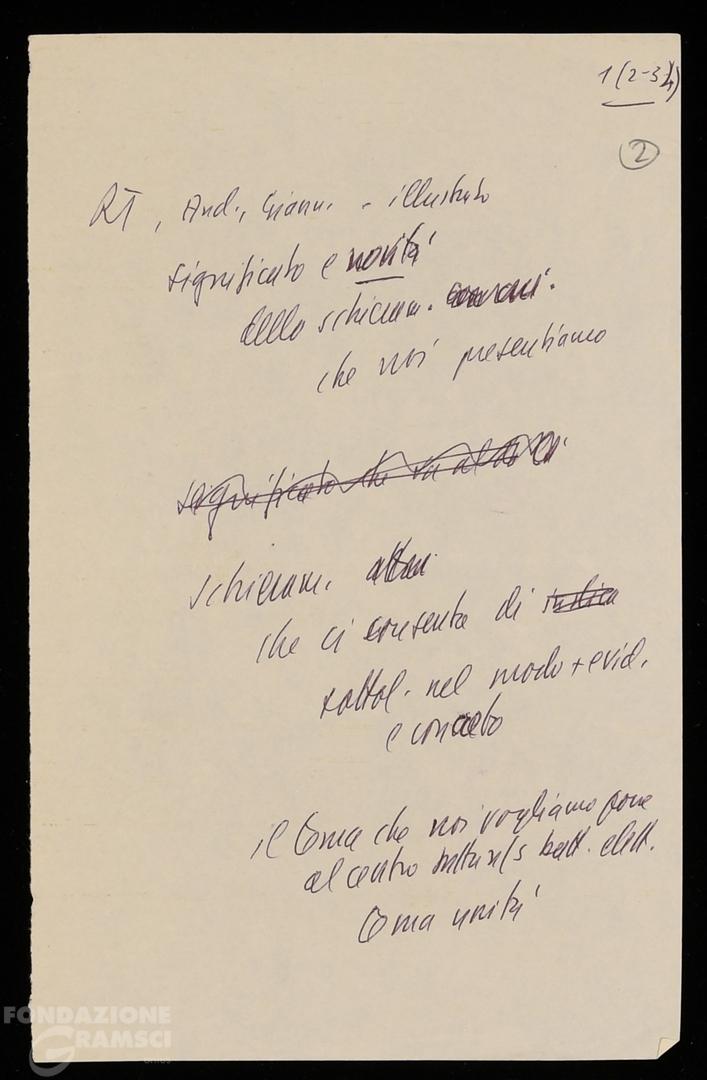 1 (2-34)
2
RT, And., Giann. - illustrato
significato e novità
dello schieram.
che noi presentiamo
significato che va al di là
schieram.
che ci consente di
sottol. nel modo + evid.
e concreto
il tema che noi vogliamo porre
al centro batt. elett.
tema unità
FONDAZIONE
GRAMSCI
ONLUS